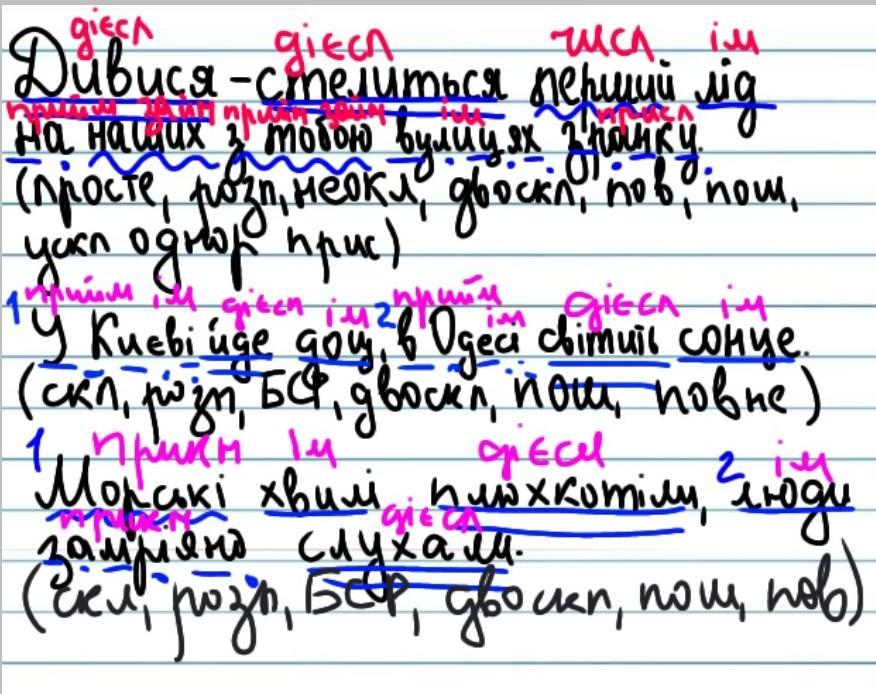 дієсл дієсл числ ім
Дивися - стелиться перший лід
прийм займ прийм займ ім присл
на наших з тобою вулицях зранку.
(просте, розп, неокл, двоскл, пов, пош,
ускл однор прис)
1 прийм ім дієсл ім 2 прийм ім дієсл ім
У Києві йде дощ, в Одесі світить сонце.
(скл, розп, БСР, двоскл, пош, повне)
1 прикм ім дієсл 2 ім
Морські хвилі плюхкотіли, люди
дієсл
замріяно слухали.
(скл, розп, БСР, двоскл, пош, пов)